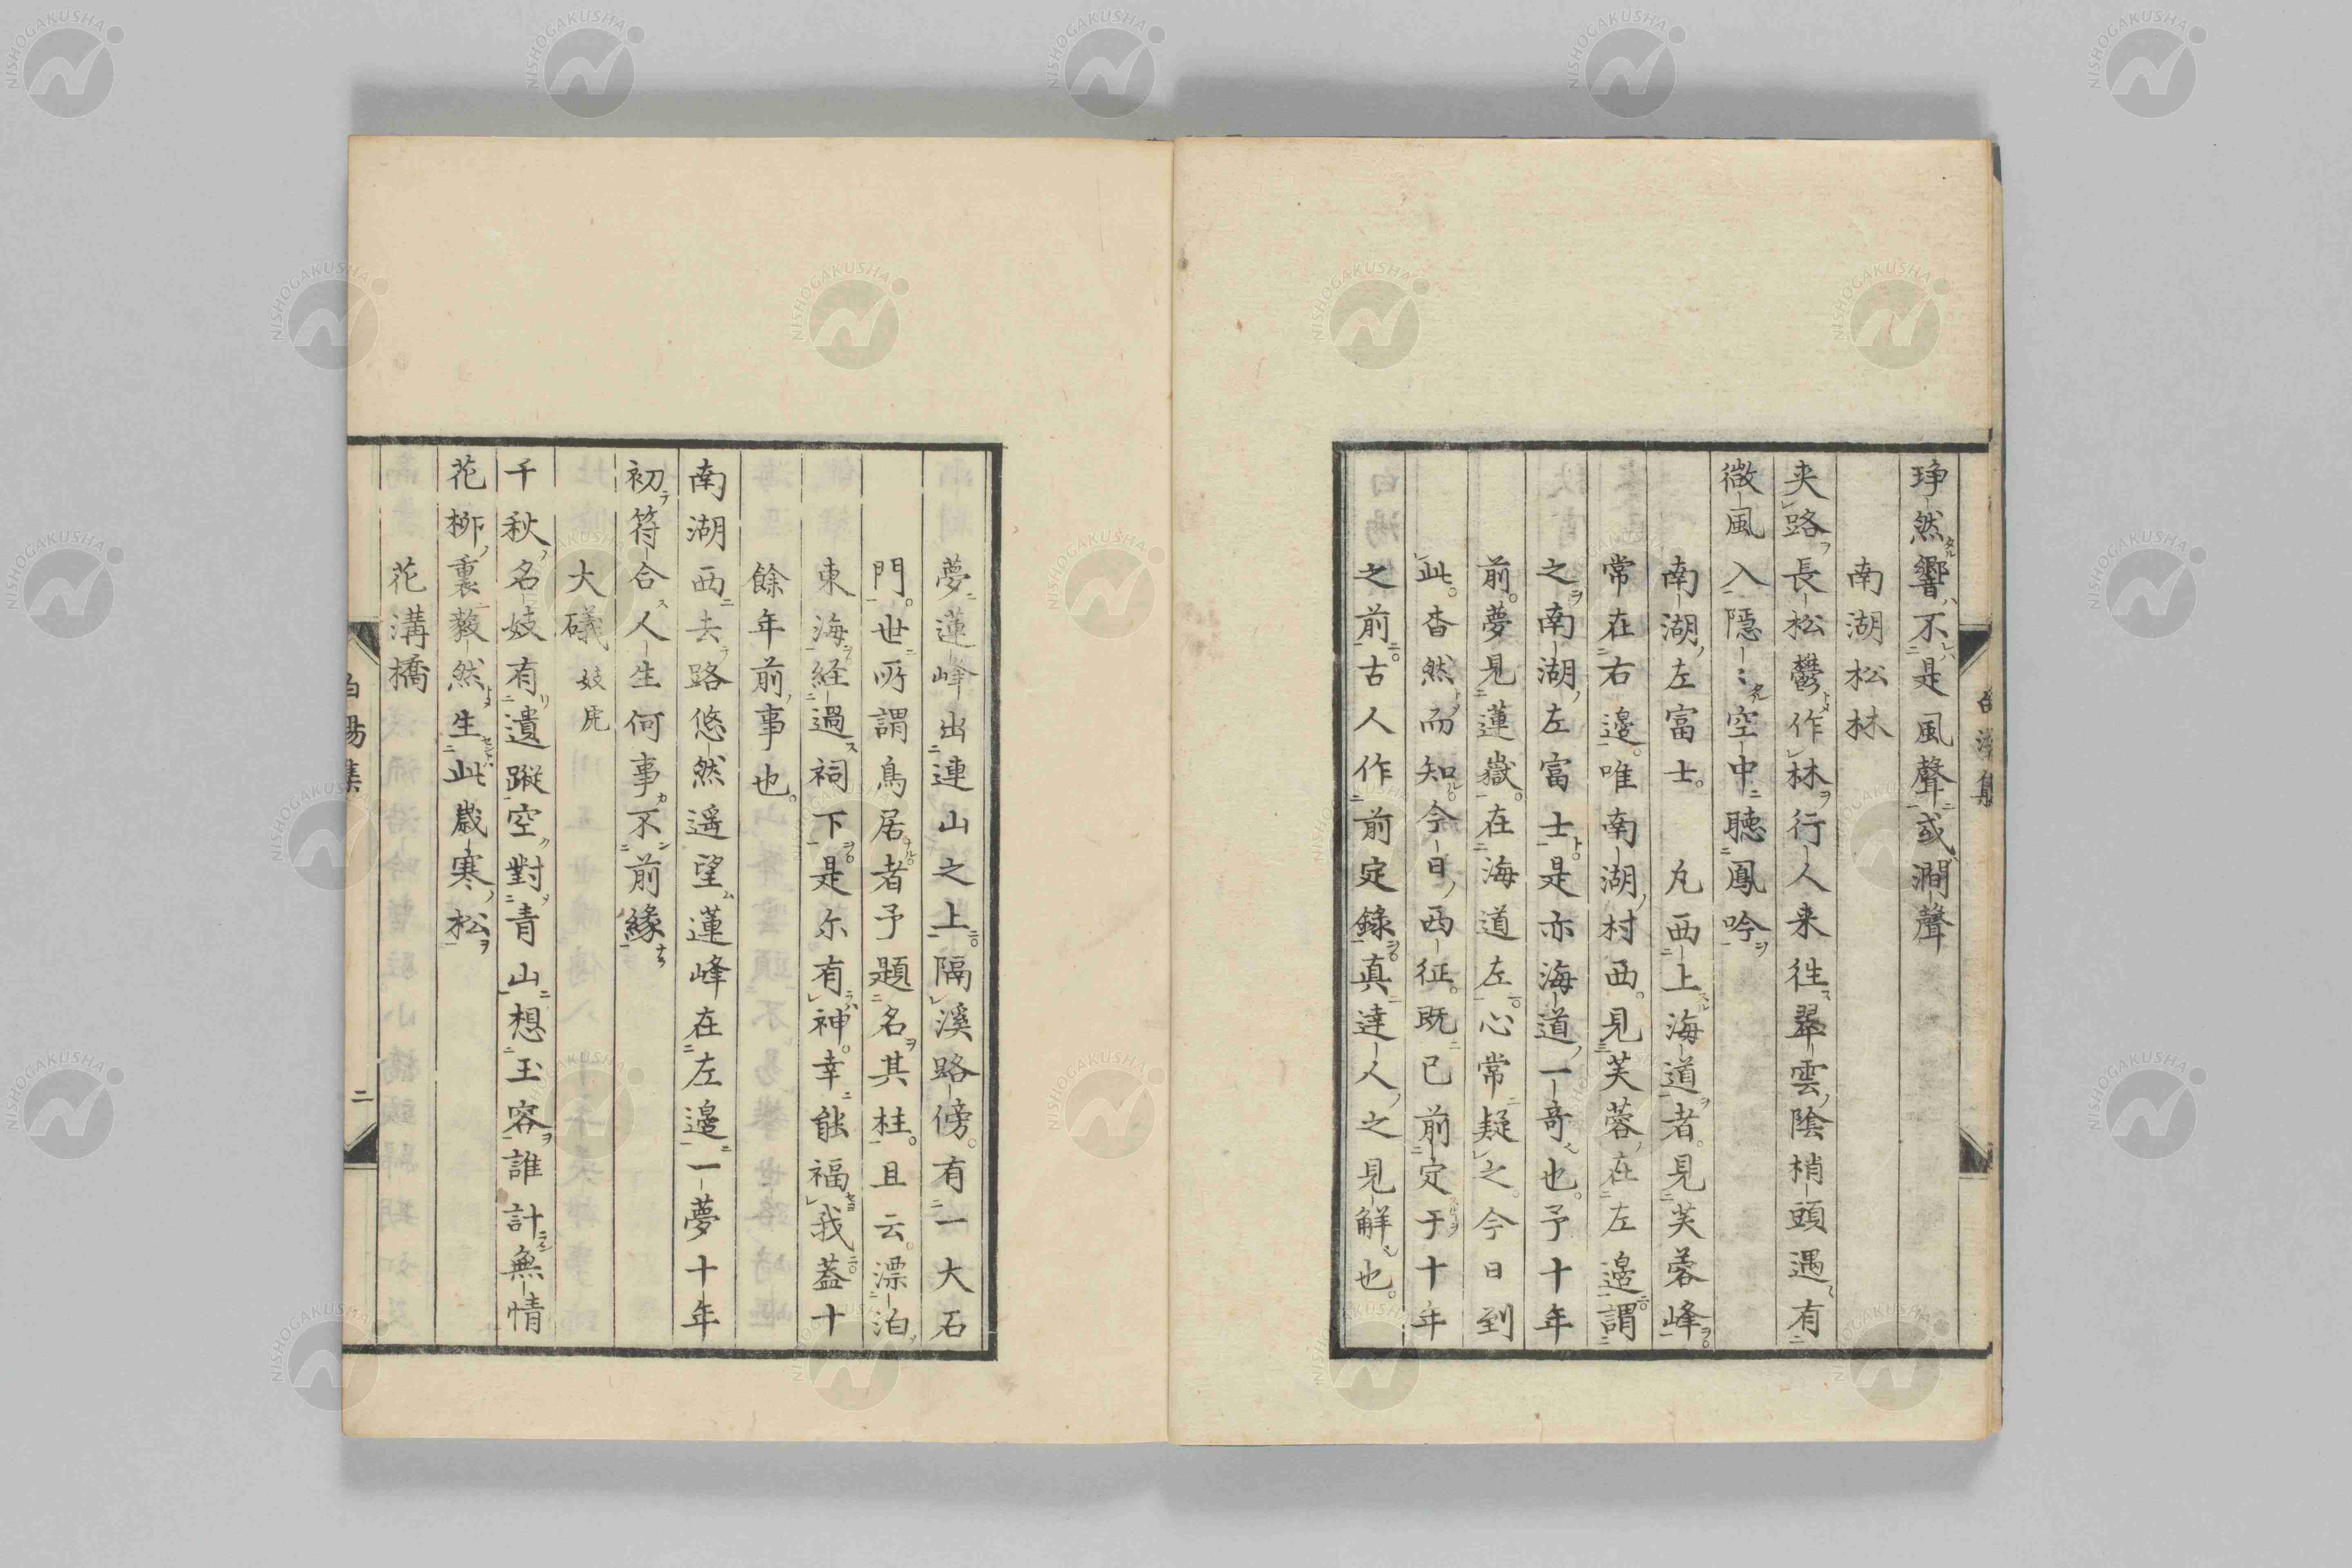 琤然響不是風聲或澗聲
南湖松林
夾路長松鬱作林行人来徃翠雲陰梢頭遇有
微風入隠〻空中聴鳳吟
南湖左富士。 凢西上海道者。見芙蓉峰。
常在右邉。唯南湖村西。見芙蓉在左邉。謂
之南湖左富士。是亦海道一竒也。予十年
前。夢見蓮嶽。在海道左。心常疑之。今日到
此。杳然而知。今日西征。既已前定于十年
之前。古人作前定錄。真達人之見解也。
夢蓮峰出連山之上。隔溪路傍。有一大石
門。世所謂鳥居者。予題名其柱。且云。漂泊
東海。経過祠下。是尓有神。幸能福我。蓋十
餘年前事也。
南湖西去路悠然遥望蓮峰在左邉一夢十年
初符合人生何事不前縁
大礒 妓虎
千秋名妓有遺蹤空對青山想玉容誰計無情
花柳裏毅然生此歳寒松
花溝橋
白湯集
二
NISHOGAKUSHA